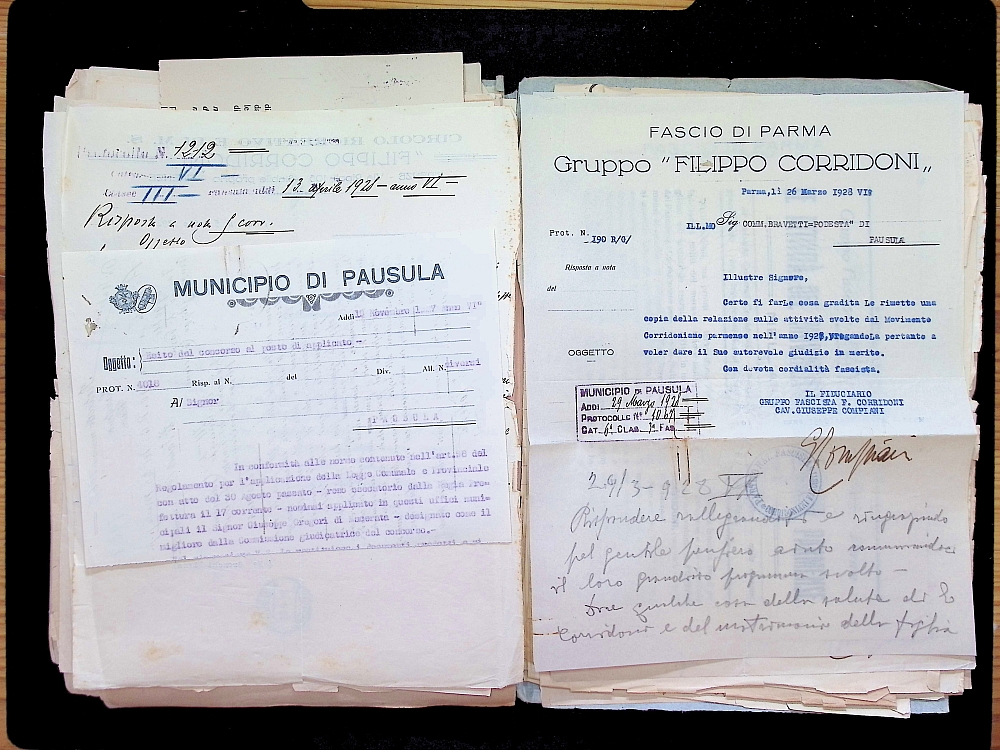 N. 1212
VI
III
13. aprile 1928 - anno VI -
Risposta a nota corr.
Oggetto
MUNICIPIO DI PAUSULA
Addì 19 Novembre
Oggetto: Esito del concorso al posto di applicato -
PROT. N. 4018 Risp. al N. del Div. All. N. diversi
Al Signor
PAUSULA
In conformità alle norme contenute nell'art. del
Regolamento per l'applicazione della Legge Comunale e Provinciale
con atto del 30 Agosto passato - reso esecutorio dalla Regia Pre-
fettura il 17 corrente - nominai applicato in questi uffici muni-
cipali il Signor Giuseppe Gregori di Macerata - designato come il
migliore dalla Commissione giudicatrice del concorso.-
FASCIO DI PARMA
Gruppo "FILIPPO CORRIDONI„
Parma,lì 26 Marzo 1928 VIº
Prot. N. 190 R/G/
ILL.MO Sig COMM.BRAVETTI=PODESTA" DI
PAUSULA
Risposta a nota
del
Illustre Signore,
Certo fi farLe cosa gradita Le rimetto una
copia della relazione sulle attività svolte dal Movimento
Corridoniano parmense nell'anno 1928, pregandoLa pertanto a
voler dare il Suo autorevole giudizio in merito.
OGGETTO
Con devota cordialità fascista.
IL FIDUCIARIO
GRUPPO FASCISTA F. CORRIDONI
CAV.GIUSEPPE COMPIANI
MUNICIPIO DI PAUSULA
ADDI 29 Marzo 1928
PROTOCOLLO Nº 1062
CAT. 6ª CLAS. 1ª FAS.
GCompiani
29/3-928 VI
Rispondere rallegrandosi e ringraziando
pel gentile pensiero avuto
il loro grandioso programma svolto -
Dire qualche cosa della salute di
Corridoni e del matrimonio della figlia